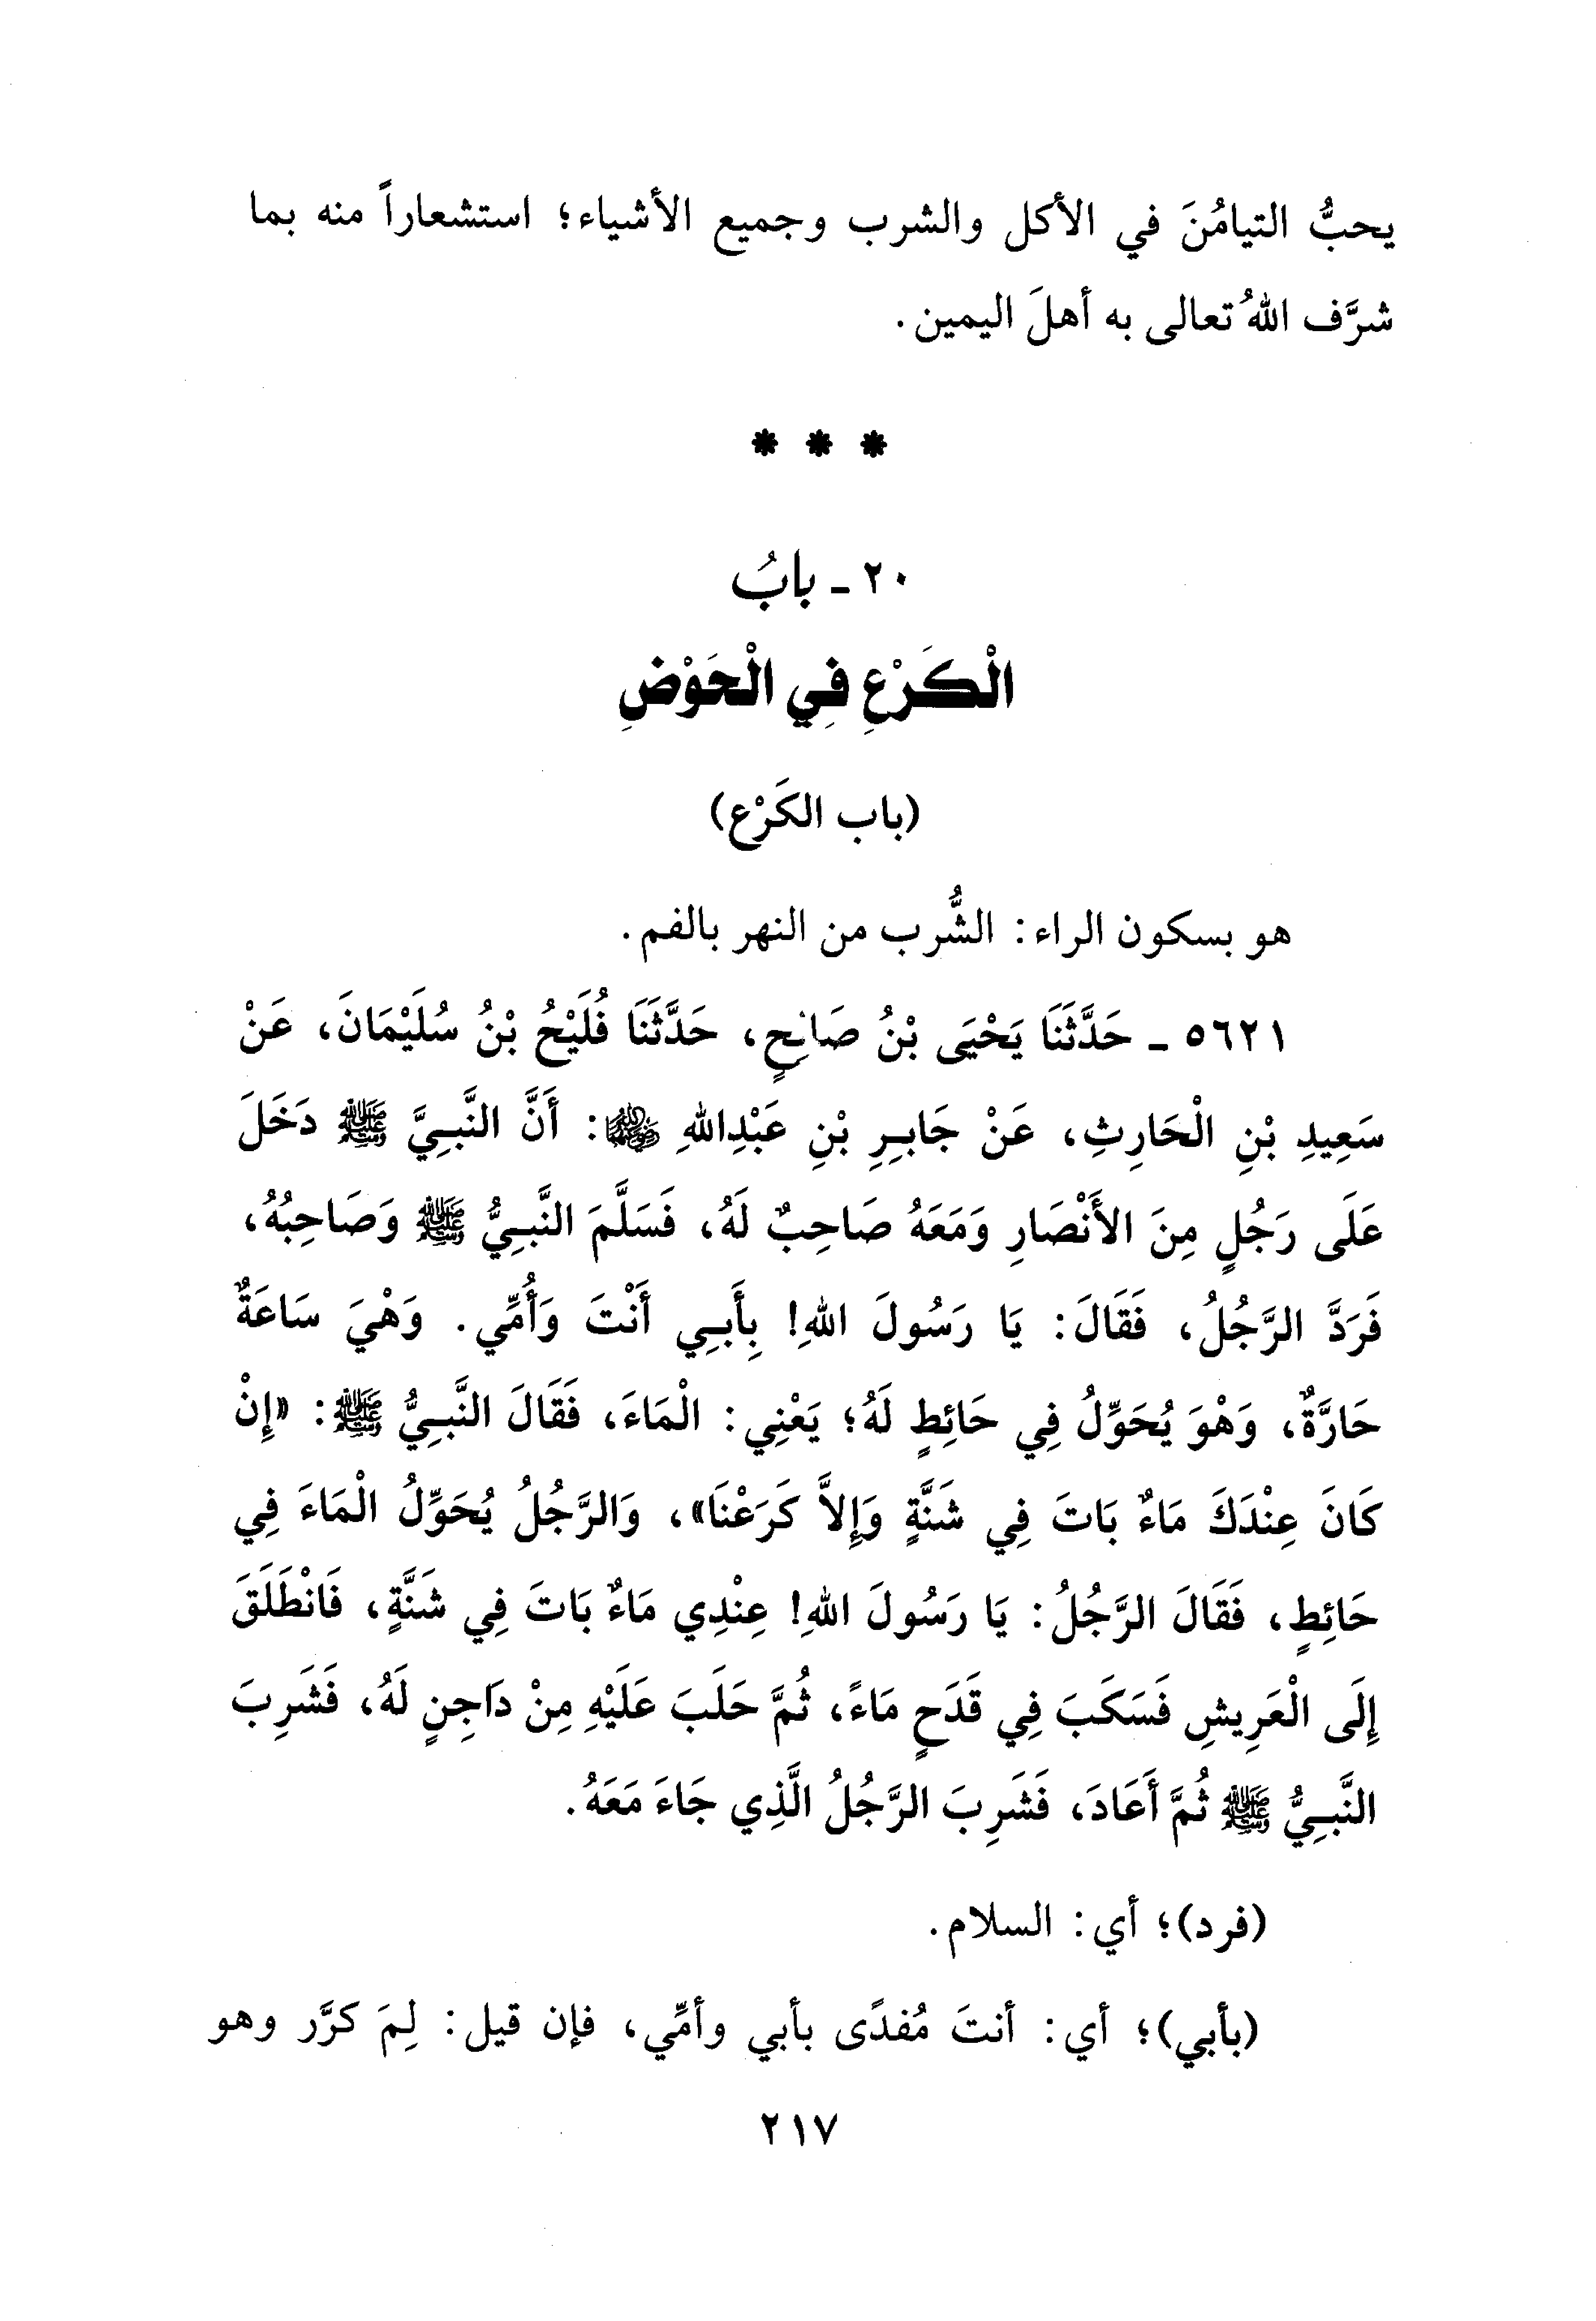 يحبُّ التيامُنَ في الأكل والشرب وجميع الأشياء؛ استشعاراً منه بما
شرَّف اللهُ تعالى به أهلَ اليمين.
* * *
٢٠ - بابُ
الْكَرْعِ فِي الْحَوْضِ
(باب الكَرْع)
هو بسكون الراء: الشُّرب من النهر بالفم.
٥٦٢١ - حَدَّثَنَا يَحْيَى بْنُ صَالِحٍ، حَدَّثَنَا فُلَيْحُ بْنُ سُلَيْمَانَ، عَنْ
سَعِيدِ بْنِ الْحَارِثِ، عَنْ جَابِرِ بْنِ عَبْدِاللهِ ﵄: أَنَّ النَّبِيَّ ﷺ دَخَلَ
عَلَى رَجُلٍ مِنَ الأَنْصَارِ وَمَعَهُ صَاحِبٌ لَهُ، فَسَلَّمَ النَّبِيُّ ﷺ وَصَاحِبُهُ،
فَرَدَّ الرَّجُلُ، فَقَالَ: يَا رَسُولَ اللهِ! بِأَبِي أَنْتَ وَأُمِّي. وَهْيَ سَاعَةٌ
حَارَّةٌ، وَهْوَ يُحَوِّلُ فِي حَائِطٍ لَهُ؛ يَعْنِي: الْمَاءَ، فَقَالَ النَّبِيُّ ﷺ: «إِنْ
كَانَ عِنْدَكَ مَاءٌ بَاتَ فِي شَنَّةٍ وَإِلاَّ كَرَعْنَا»، وَالرَّجُلُ يُحَوِّلُ الْمَاءَ فِي
حَائِطٍ، فَقَالَ الرَّجُلُ: يَا رَسُولَ اللهِ! عِنْدِي مَاءٌ بَاتَ فِي شَنَّةٍ، فَانْطَلَقَ
إِلَى الْعَرِيشِ فَسَكَبَ فِي قَدَحٍ مَاءً، ثُمَّ حَلَبَ عَلَيْهِ مِنْ دَاجِنٍ لَهُ، فَشَرِبَ
النَّبِيُّ ﷺ ثُمَّ أَعَادَ، فَشَرِبَ الرَّجُلُ الَّذِي جَاءَ مَعَهُ.
(فرد)؛ أي: السلام.
(بأبي)؛ أي: أنتَ مُفدًى بأبي وأمِّي، فإن قيل: لِمَ كرَّر وهو
٢١٧